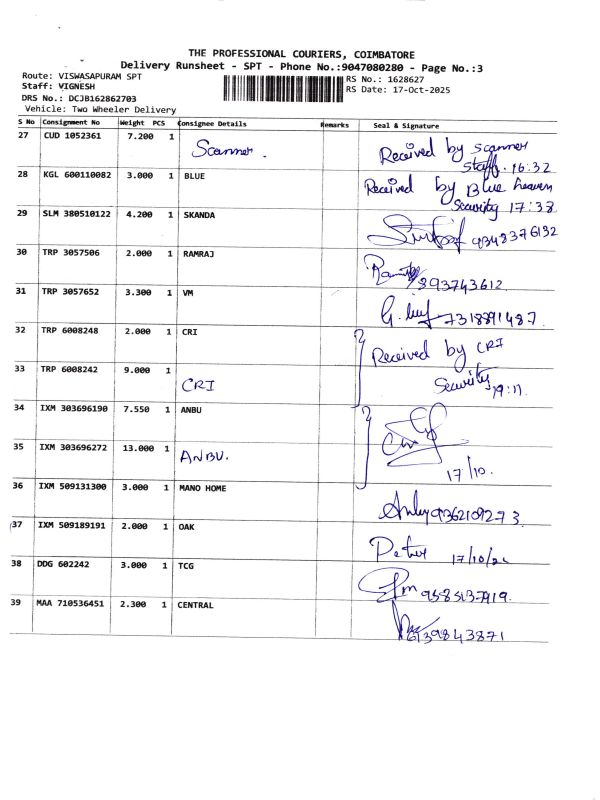 THE PROFESSIONAL COURIERS, COIMBATORE
Delivery Runsheet - SPT - Phone No.:9047080280 - Page No.:3
Route: VISWASAPURAM SPT
RS No.: 1628627
Staff: VIGNESH
RS Date: 17-Oct-2025
DRS No.: DCJB162862703
Vehicle: Two Wheeler Delivery
S No Consignment No Weight PCS Consignee Details Remarks Seal & Signature
27 CUD 1052361 7.200 1 Scanner. Received by scanner
staff. 16:32
28 KGL 600110082 3.000 1 BLUE Received by Blue heaven
Security 17:38
29 SLM 380510122 4.200 1 SKANDA 9348376132
30 TRP 3057506 2.000 1 RAMRAJ 893743612
31 TRP 3057652 3.300 1 VM 7318891487
32 TRP 6008248 2.000 1 CRI Received by CRI
33 TRP 6008242 9.000 1 CRI Security 19:11
34 IXM 303696190 7.550 1 ANBU
35 IXM 303696272 13.000 1 ANBU. 17/10.
36 IXM 509131300 3.000 1 MANO HOME 9362109273
37 IXM 509189191 2.000 1 OAK 17/10/25
38 DDG 602242 3.000 1 TCG
39 MAA 710536451 2.300 1 CENTRAL